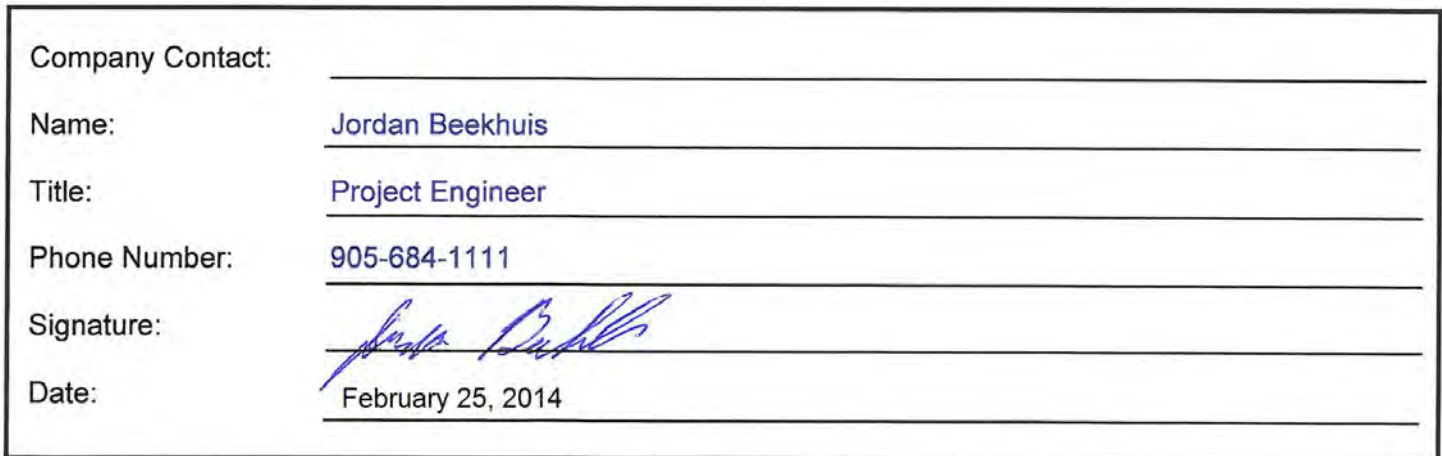 Company Contact:
Name: Jordan Beekhuis
Title: Project Engineer
Phone Number: 905-684-1111
Signature:
Date: February 25, 2014